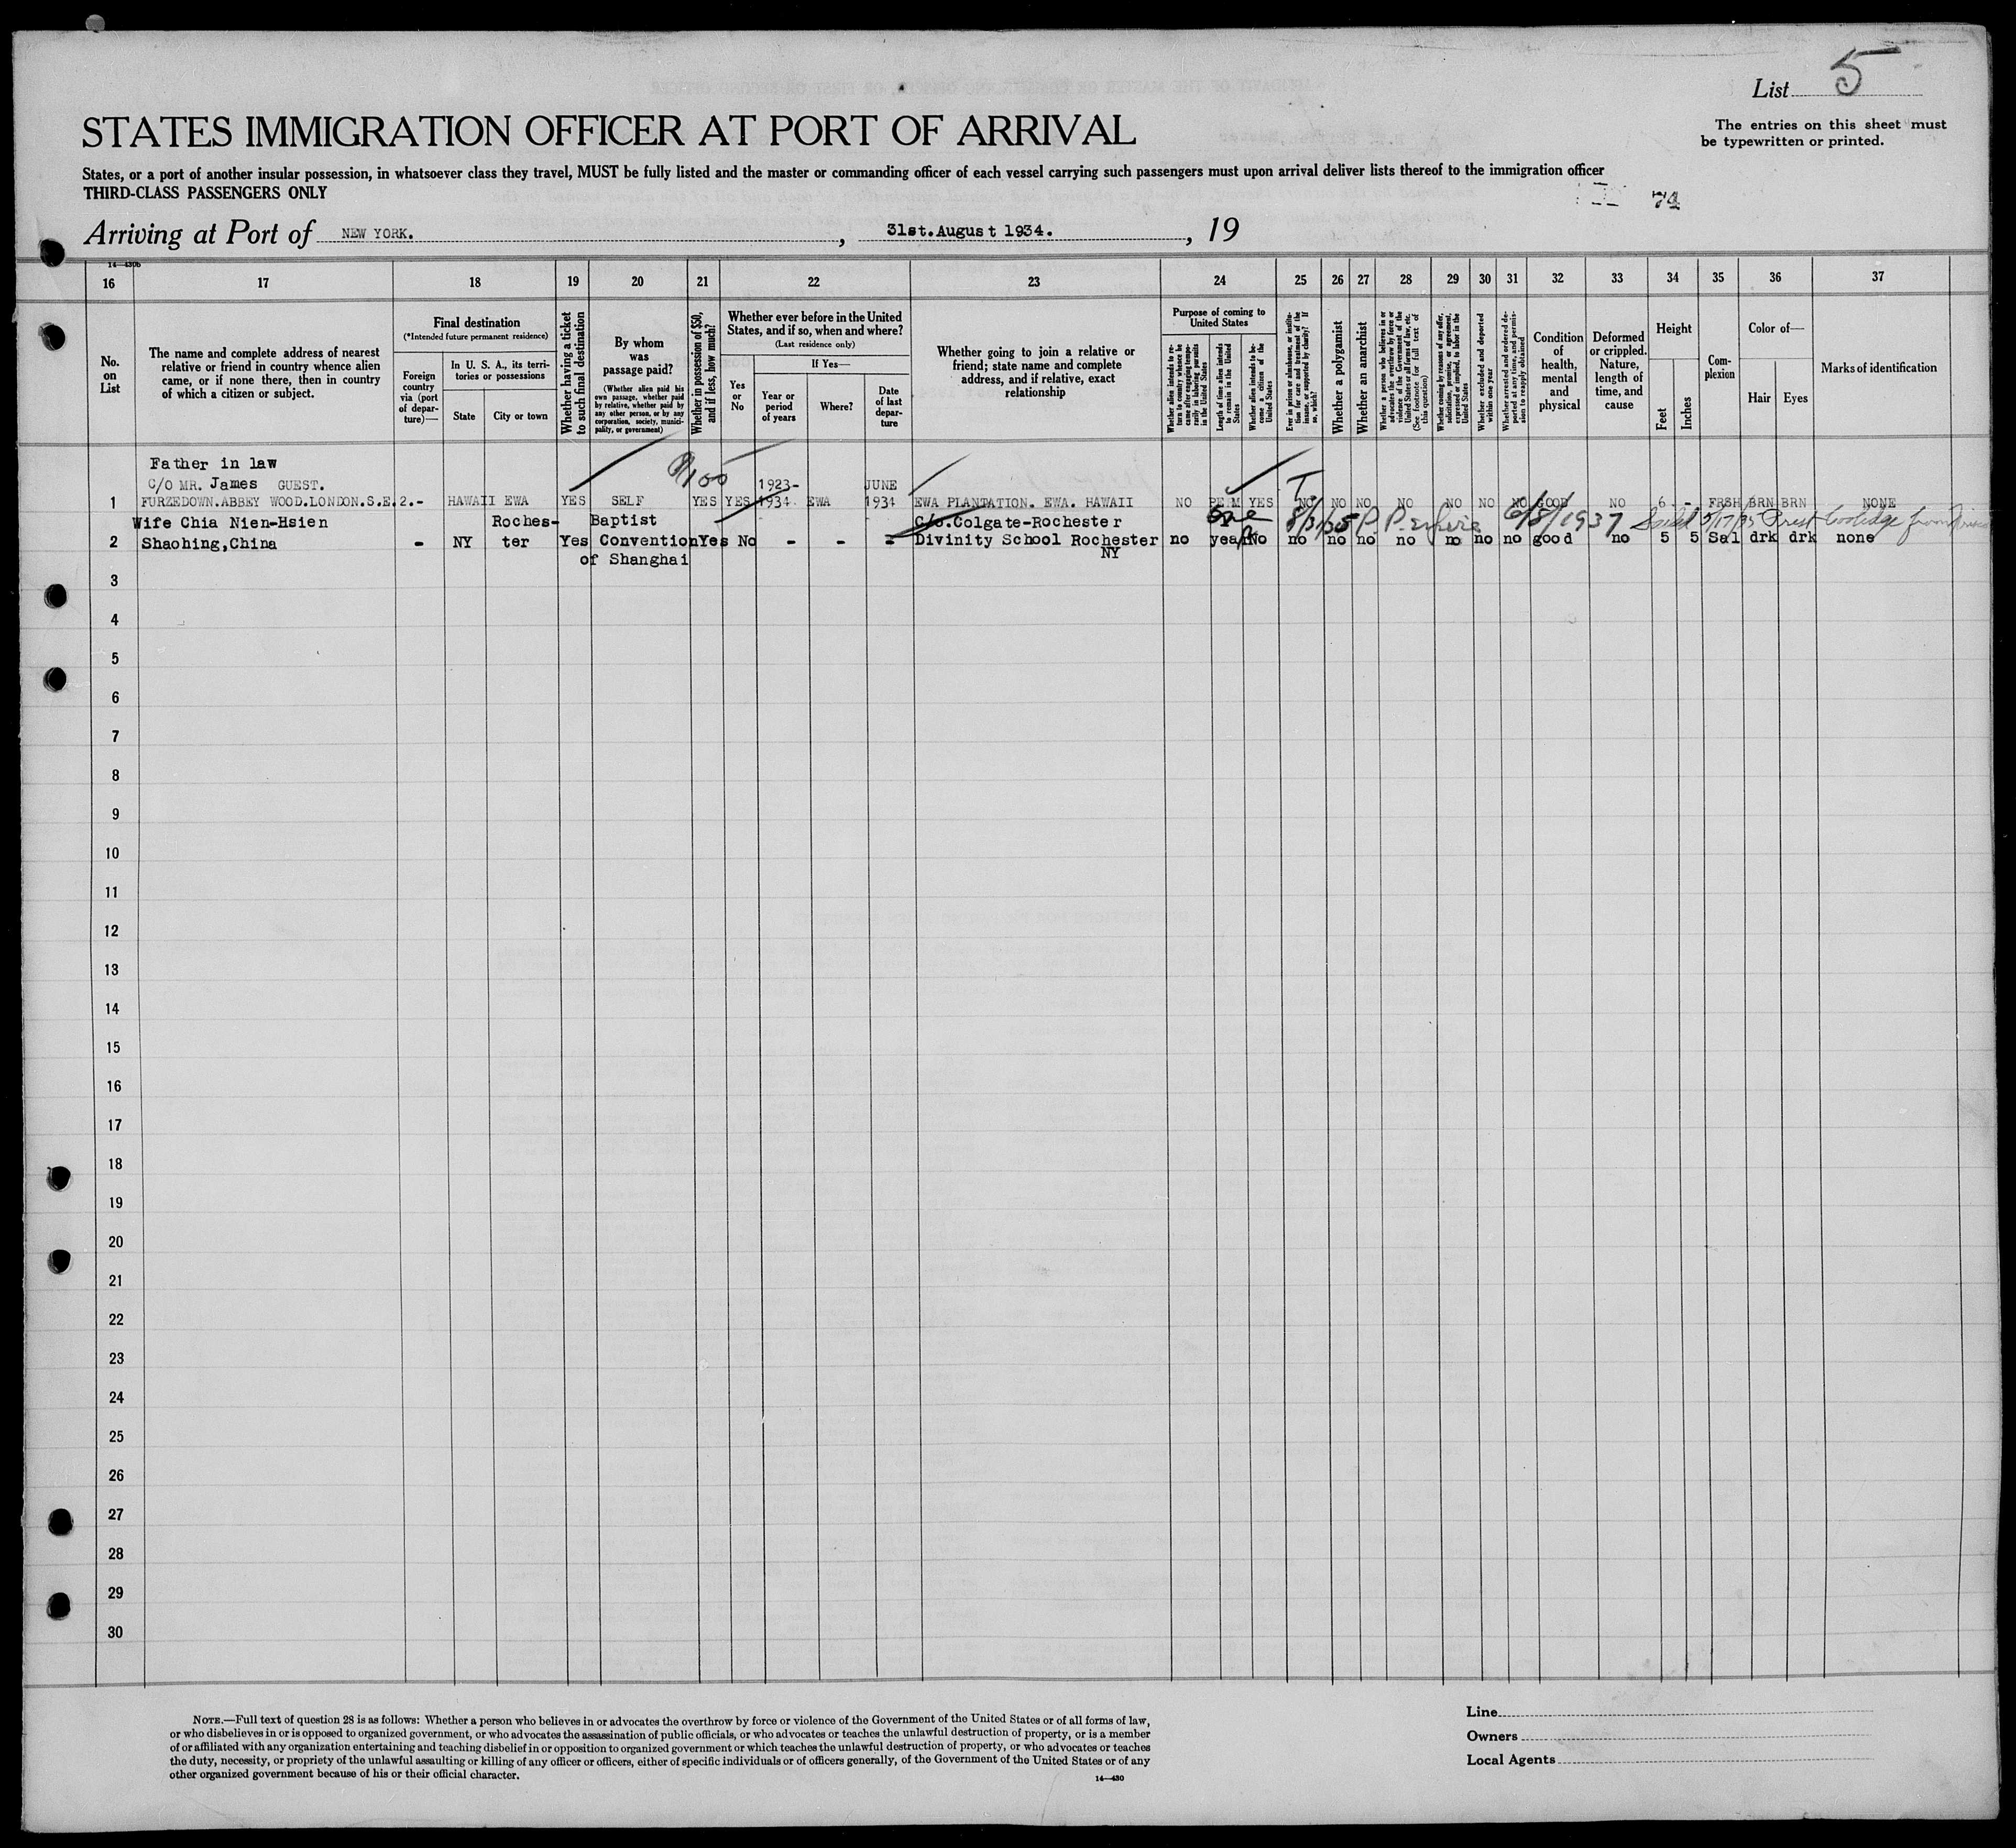 List 5
The entries on this sheet must
be typewritten or printed.
STATES IMMIGRATION OFFICER AT PORT OF ARRIVAL
States, or a port of another insular possession, in whatsoever class they travel, MUST be fully listed and the master or commanding officer of each vessel carrying such passengers must upon arrival deliver lists thereof to the immigration officer
THIRD-CLASS PASSENGERS ONLY
74
Arriving at Port of NEW YORK. , 31st.August 1934. , 19
14—430b
16 17 18 19 20 21 22 23 24 25 26 27 28 29 30 31 32 33 34 35 36 37
No.
on
List
The name and complete address of nearest
relative or friend in country whence alien
came, or if none there, then in country
of which a citizen or subject.
Final destination
(*Intended future permanent residence)
Foreign
country
via (port
of depar-
ture)—
In U. S. A., its terri-
tories or possessions
State City or town
Whether having a ticket
to such final destination
By whom
was
passage paid?
(Whether alien paid his
own passage, whether paid
by relative, whether paid by
any other person, or by any
corporation, society, munici-
pality, or government)
Whether in possession of $50,
and if less, how much?
Whether ever before in the United
States, and if so, when and where?
(Last residence only)
Yes
or
No
If Yes—
Year or
period
of years
Where?
Date
of last
depar-
ture
Whether going to join a relative or
friend; state name and complete
address, and if relative, exact
relationship
Purpose of coming to
United States
Whether alien intends to re-
turn to country whence he
came after engaging tempo-
rarily in laboring pursuits
in the United States
Length of time alien intends
to remain in the United
States
Whether alien intends to be-
come a citizen of the
United States
Ever in prison or almshouse, or institu-
tion for care and treatment of the
insane, or supported by charity? If
so, which?
Whether a polygamist
Whether an anarchist
Whether a person who believes in or
advocates the overthrow by force or
violence of the Government of the
United States or all forms of law, etc.
(See footnote for full text of
this question)
Whether coming by reasons of any offer,
solicitation, promise, or agreement,
expressed or implied, to labor in the
United States
Whether excluded and deported
within one year
Whether arrested and ordered de-
ported at any time, and permis-
sion to reapply obtained
Condition
of
health,
mental
and
physical
Deformed
or crippled.
Nature,
length of
time, and
cause
Height
Feet Inches
Com-
plexion
Color of—
Hair Eyes
Marks of identification
Father in law
C/O MR. James GUEST. 100 1923- JUNE
1 FURZEDOWN.ABBEY WOOD.LONDON.S.E.2.- HAWAII EWA YES SELF YES YES 1934 EWA 1934 EWA PLANTATION. EWA. HAWAII NO PERM YES NO NO NO NO NO NO NO GOOD NO 6 - FRSH BRN BRN NONE
Wife Chia Nien-Hsien Roches- Baptist C/o.Colgate-Rochester One 6/8/1937 5/17/35 Prest Coolidge from
2 Shaohing,China - NY ter Yes Convention Yes No - - - Divinity School Rochester no year No no no no no no no no good no 5 5 Sal drk drk none
of Shanghai NY
3
4
5
6
7
8
9
10
11
12
13
14
15
16
17
18
19
20
21
22
23
24
25
26
27
28
29
30
NOTE.—Full text of question 28 is as follows: Whether a person who believes in or advocates the overthrow by force or violence of the Government of the United States or of all forms of law,
or who disbelieves in or is opposed to organized government, or who advocates the assassination of public officials, or who advocates or teaches the unlawful destruction of property, or is a member
of or affiliated with any organization entertaining and teaching disbelief in or opposition to organized government or which teaches the unlawful destruction of property, or who advocates or teaches
the duty, necessity, or propriety of the unlawful assaulting or killing of any officer or officers, either of specific individuals or of officers generally, of the Government of the United States or of any
other organized government because of his or their official character.
14—430
Line
Owners
Local Agents